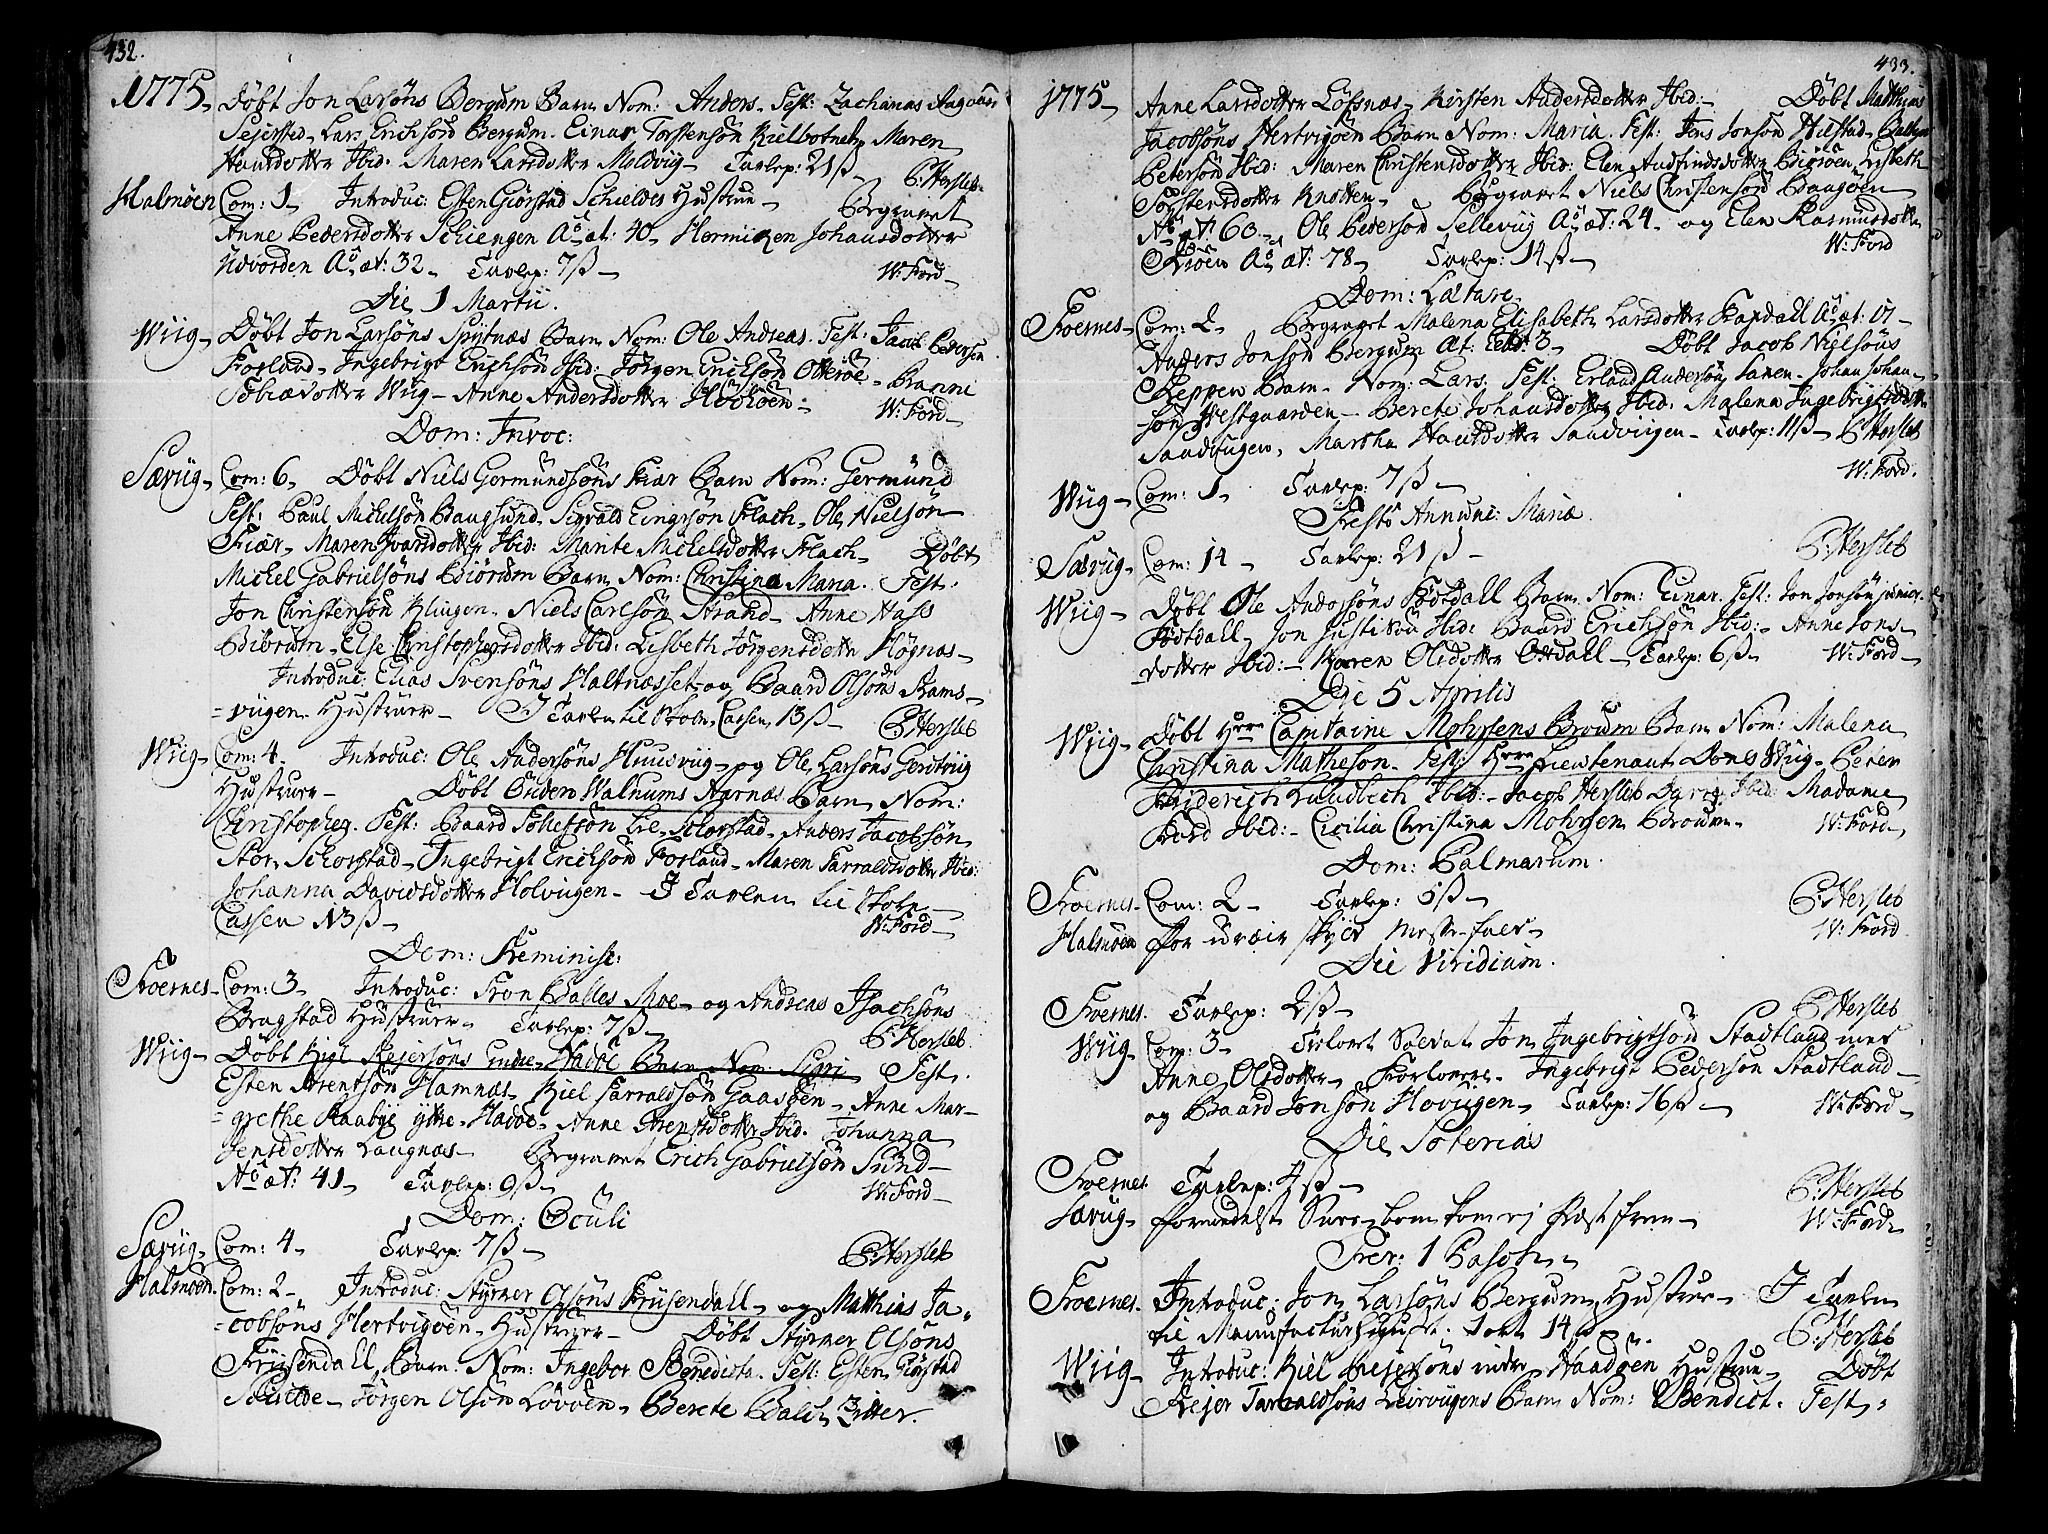 432.
1775 Døbt Jon Larsöns Bergum Barn Nom: Anders. Test: Zacharias
Sejersted. Lars Erichsön Bergum. Einar Torstensön Kielbotnet, Maren
Hansdotter Ibid: Maren Larsdotter Moldvig. Tavlep: 21 ß P: Hersleb
Halmøen Com: 1 Introduc: Esten Giørstad Schieldes Hustrue Begravet
Anne Pedersdotter Schiengen Aō æt: 40 Johansdotter
Udvorden Aō æt: 32. Tavlep: 7 ß W: Ford
Die 1 Martii.
Wiig Døbt Jon Larsöns Spytnæs Barn Nom: Ole Andreas. Test: Jacob Pedersön
Forland. Ingebrigt Erichsön Ibid: Jörgen Ericksön Otteröe
Tobiædotter Wiig Anne Andersdotter W: Ford
Dom: Invoc:
Særiig Com: 6 Døbt Niels Germundsöns Fiær Barn Nom: Germünd
Test: Paul Michelsön Baugsund, Sigvald Flach, Ole Nielsön
Fiær. Maren Ivarsdotter Ibid: Marite Michelsdotter Flach Døbt
Michel Gabrielsöns Biörum Barn Nom: Christina Maria. Test:
Jon Christensön Klingen. Niels Carlsön Strand. Anne Hass
Biörum. Else Christophersdotter Ibid: Lisbeth Jörgensdotter Högnæs
Introduc: Elias Svensöns Haltnæsset og Baard Olsöns Rams-
=viigen Hustruer I Tavlen til Skole Cassen 13 ß P: Hersleb
Wiig Com: 4. Introduc: Ole Andersöns Huusviig og Ole Larsöns
Hustruer Døbt Walnums Aarnæs Barn Nom:
Christopher. Test: Baard Lie, Schorstad, Anders Jacobsön
Stor Schorstad, Ingebrigt Ericksön Forland, Maren Tarraldsdotter Ibid:
Johanna Davidsdotter Holviigen I Tavlen til Skole
Cassen N3 ß W: Ford
Dom: Reminisc:
Foernes Com: 3 Introduc: Balles Moe og Andreas Isachsöns
Bragstad Hustruer Tavlep: 7 ß P: Hersleb.
Wiig Døbt Kiel Rejersöns Barn Nom: Sigri Test:
Esten Arentsön Hamnæs, Kiel Tarraldsön Gaasöen, Anne Mar-
=grethe Raabye ytre Anne Arentsdotter Ibid. Johanna
Jensdotter Laugnæs Begravet Erich Gabrielsön Sünd
Aō æt: 41 Tavlep: 9 ß W: Ford
Dom: Oculi
Særiig Com: 4 Tavlep: 7 ß P: Hersleb
Halmøen Com: 2 Introduc: Styrner Olsöns Früsendall og Matthias Ja-
=cobsöns Hertvigöen Hustruer Døbt Styrner Olsöns
Früsendall Barn. Nom: Ingebor Benedicta. Test: Esten Giørstad
Schielde Jörgen Olsön Lövöen, Berete
433.
1775 Anne Larsdotter Löfsnæs, Kirsten Andersdotter Ibid: Døbt Matthias
Jacobsöns Hertvigöen Barn Nom: Maria. Test: Jens Jonsön
Petersön Ibid: Maren Christensdotter Ibid: Elen Audfindsdotter Biöröen, Lisbeth
Torstensdotter Knotten Begravet Niels Christensön Baugöen
Aō æt: 60 Ole Pedersön Sellevüg Aō æt: 24 og Elen Rasmusdotter
Aō æt: 78 Tavlep: 14 ß W: Ford
Dom: Lætare
Foernes Com: 2 Begravet Malena Elisabeth Larsdotter Aō æt: 17
Anders Jonsön Bergum Æt: 3 Døbt Jacob Nielsöns
Reppen Barn Nom: Lars. Test: Erland Andersön, Johan Johan-
sön Vestgaarden Berete Johansdotter Ibid: Malena Ingebrigtsdotter
Martha Hansdotter Sandviigen Tavlep: 11 ß P: Hersleb
Wiig Com: 1 Tavlep: 7 ß W: Ford.
Festo Annunc: Mariæ
Særiig Com: 14 Tavlep: 21 ß P: Hersleb
Wiig Døbt Ole Andersöns Barn Nom: Einar. Test: Jon Jonsön junior
Jon Ibid: Baard Erichsön Ibid: Anne Jons-
dotter Ibid: Karen Olsdotter Tavlep: 6 ß W: Ford
Die 5 Aprilis
Wiig Døbt Herr Capitaine Mohrsens Broum Barn Nom: Malena
Christina Matheson. Test: Herr Lieutenant Dons Wiig. Peter
Friderich Lundbech Ibid: Jacob Hersleb Ibid: Madame
Ford Ibid: Cicilia Christina Mohrsen Broum W: Ford
Dom: Palmarum.
Foernes Com: 2 Tavlep: 5 ß P: Hersleb
Halmøen for uveir skyld Messe-falt W: Ford
Die Viridium.
Foernes. Tavlep: 2 ß P: Hersleb
Wiig Com: 3 Trolovet Soldat Jon Ingebrigtsön Stadtland med
Anne Olsdotter Forlovere Ingebrigt Pedersön Stadtland
og Baard Jonsön Hoviigen Tavlep: 16 ß W: Ford
Die Soterias
Foernes. Tavlep: 4 ß P: Hersleb
Særiig formedelst kom ej Præst frem W: Ford
Fer: 1 Pasch:
Foernes. Introduc: Jon Larsöns Bergum Hustrue I Tavlen
til Manufactur 1 ort 14 P: Hersleb
Wiig Introduc: Kiel Rejersöns indre Haadöen Hustrue Døbt
Rejer Tarraldsöns Leirviigens Barn Nom: Bendict. Test: